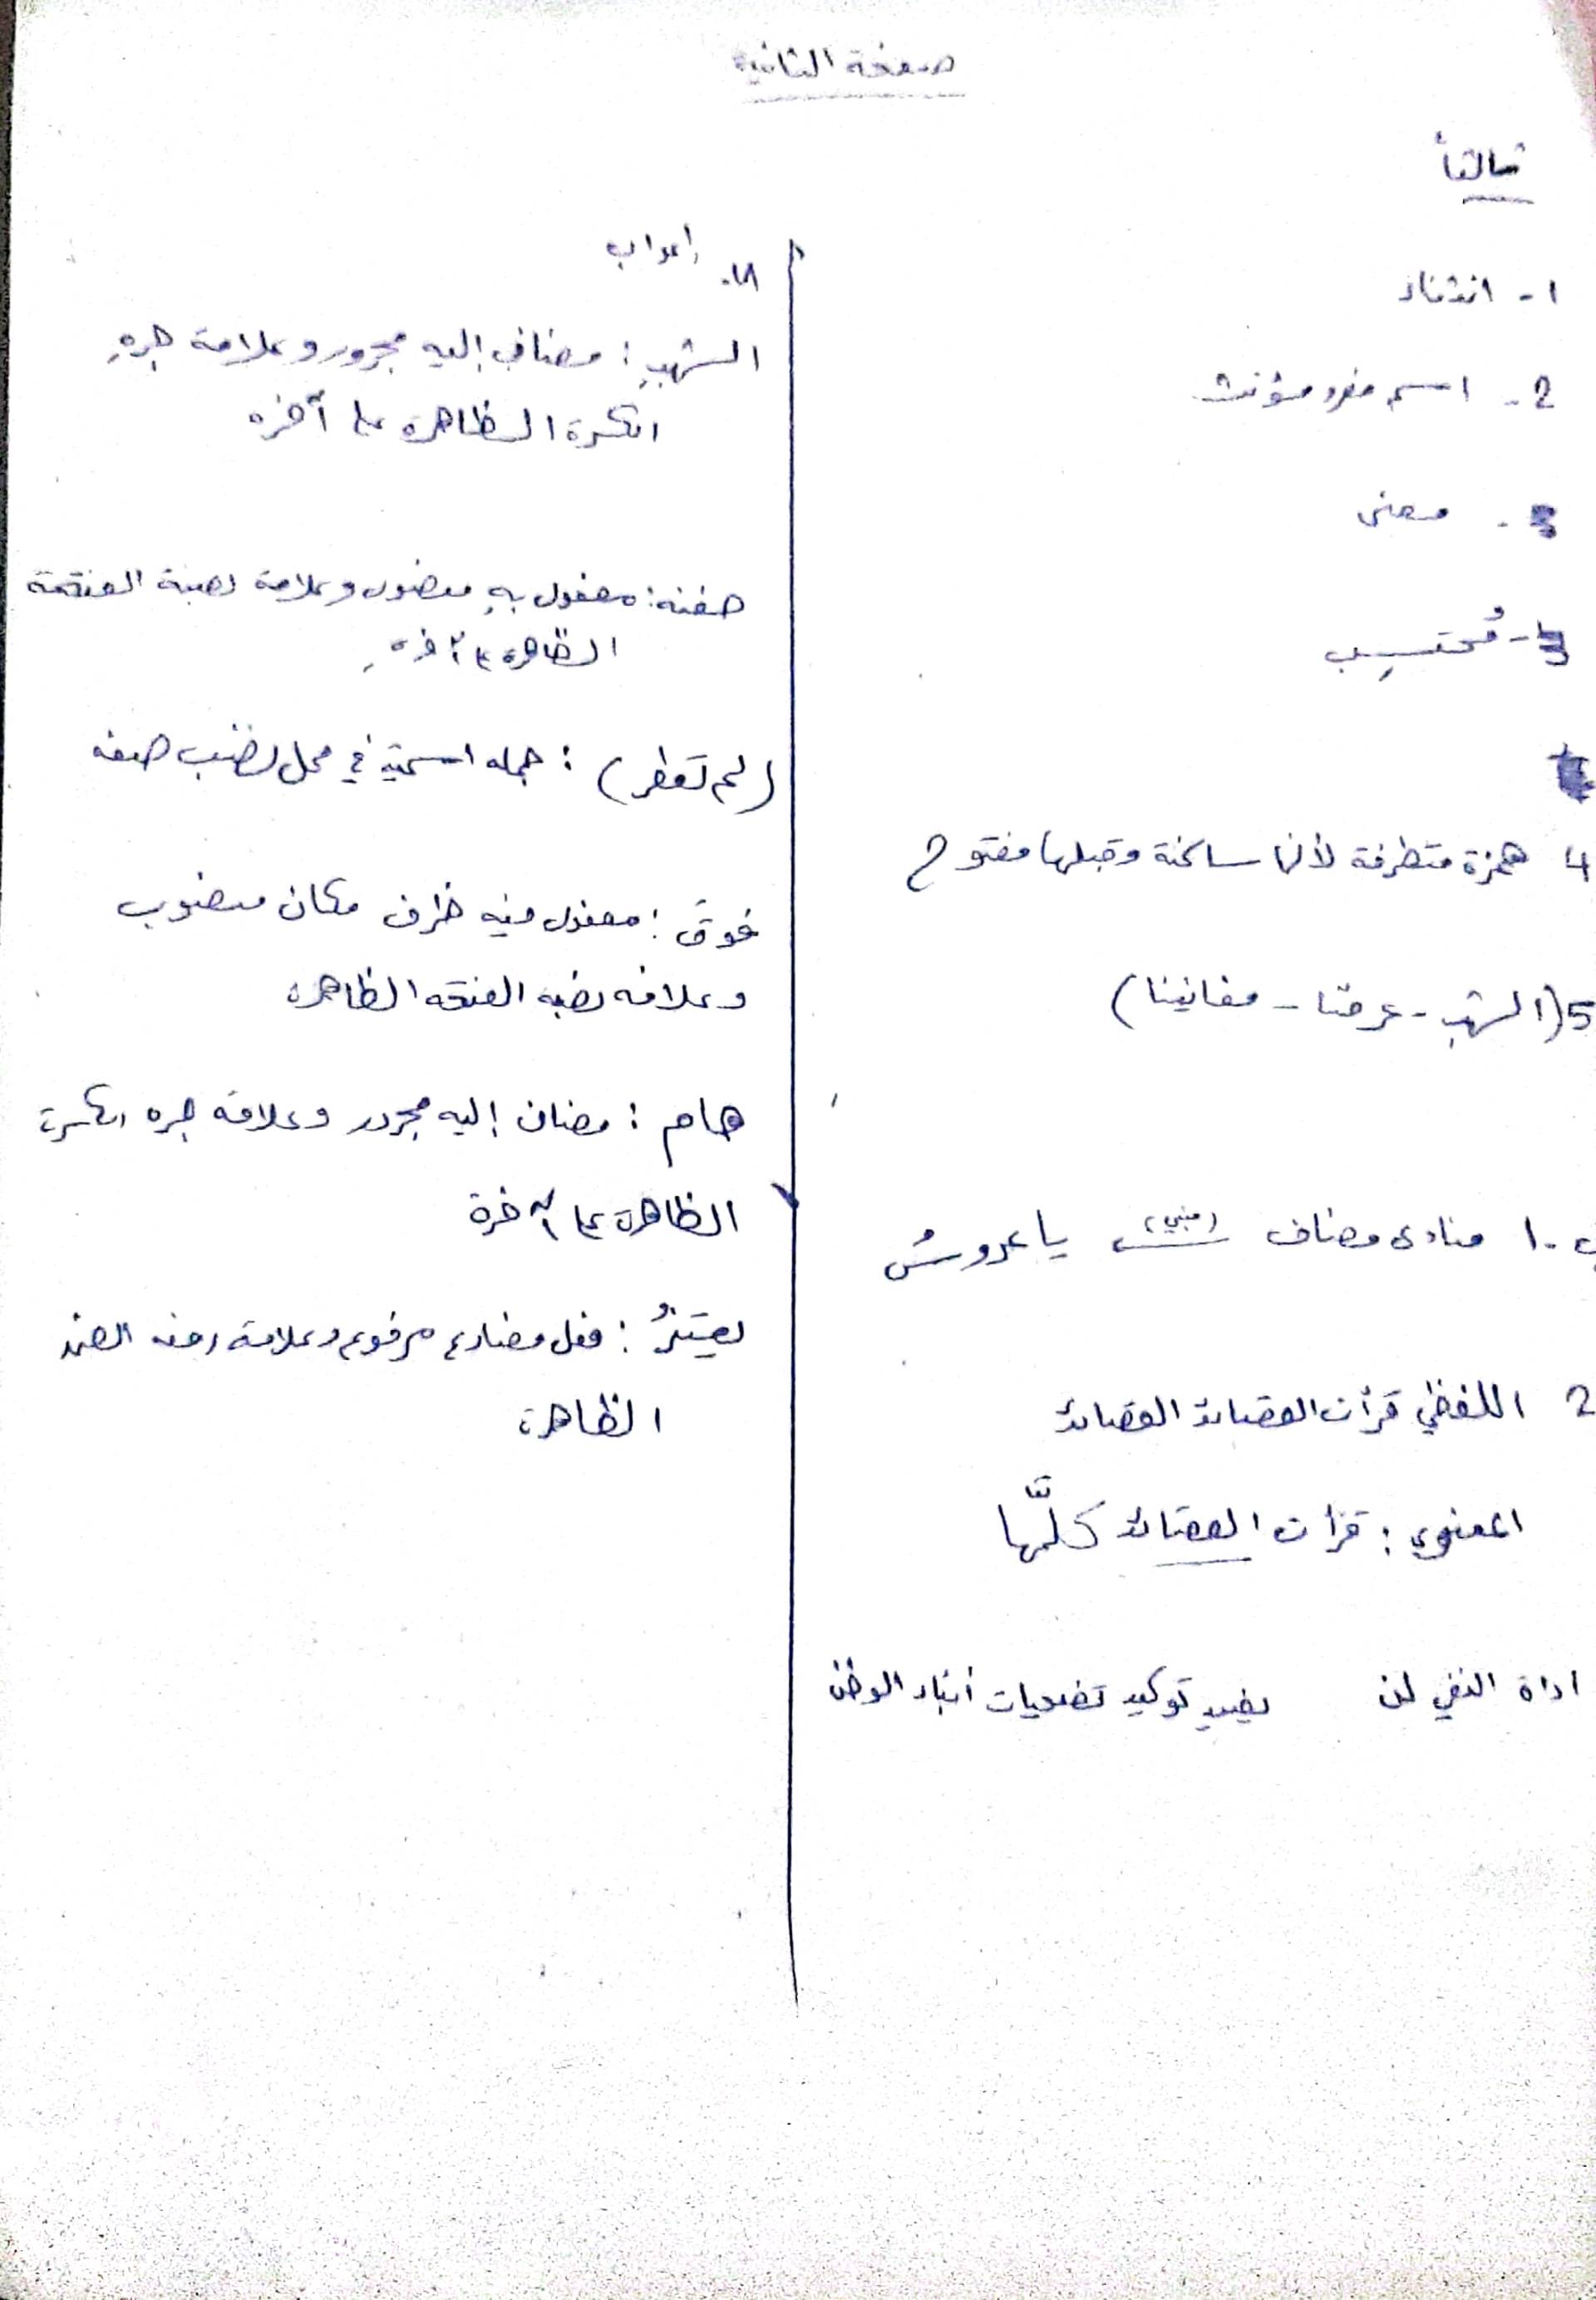 صفحة الثانية
ثالثاً
1- انشاء
2- اسم مفرد مؤنث
3- معنى
3- مُحتسِب
4 همزة متطرفة لأنها ساكنة وقبلها مفتوح
5 (الشهب - عرفنا - مغانينا)
ب-1 منادى مضاف (مبني) يا عروسُ
2 اللفظي قرأت القصائد القصائد
المعنوي: قرأت القصائد كلَّها
اداة النفي لن يفيد توكيد تضحيات أبناء الوطن
اعراب
الشهبِ: مضاف إليه مجرور وعلامة جرهِ
الكسرة الظاهرة على آخره
مفعول بهِ منصوب وعلامة نصبة الفتحة
الظاهرة على آخره
(لم تعطر): جمله اسمية في محل نصب صفه
فوقَ: مفعول فيه ظرف مكان منصوب
وعلامه نصبه الفتحه الظاهرة
هام: مضاف إليه مجرور وعلامة جره الكسرة
الظاهرة على آخرة
فعل مضارع مرفوع وعلامة رفعه الضمه
الظاهرة